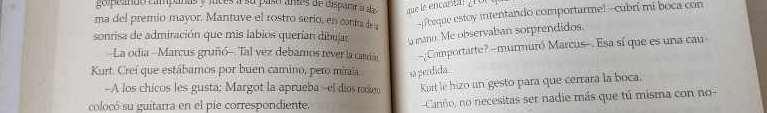 golpeando campanas y luces a su paso antes de disparar la alar-
ma del premio mayor. Mantuve el rostro serio, en contra de la
sonrisa de admiración que mis labios querían dibujar.
—La odia —Marcus gruñó—. Tal vez debamos rever la canción,
Kurt. Creí que estábamos por buen camino, pero mírala.
—A los chicos les gusta; Margot la aprueba —el dios rockero
colocó su guitarra en el pie correspondiente.
que le encanta!
—¡Porque estoy intentando comportarme! —cubrí mi boca con
la mano. Me observaban sorprendidos.
—¿Comportarte? —murmuró Marcus—. Esa sí que es una cau-
sa perdida.
Kurt le hizo un gesto para que cerrara la boca.
—Cariño, no necesitas ser nadie más que tú misma con no-